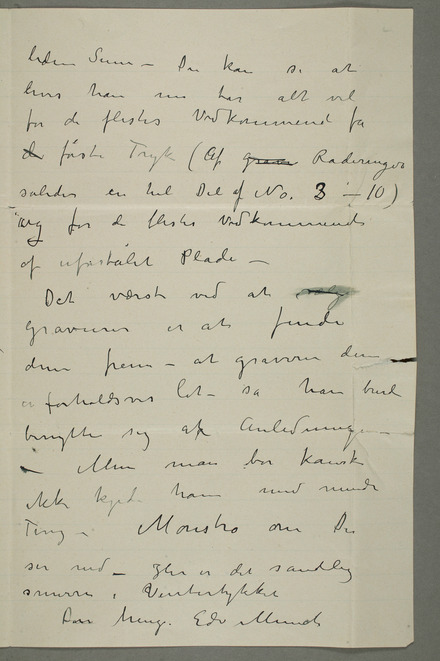 liden Sum – Du kan se at
hvis han nu har alt vel
for de flestes Vedkommend få
de første Tryk (Af Raderinger
således en hel Del af No. 3 – 10)
og for de flestes Vedkommende
af uforstålet Plade –
Det værste ved at
gravurer er at finde
dem frem – at gravere dem
er forholdsvis let – så han burde
benytte sig af Anledningen –
– Men man bør kanske
ikke kjede ham med mindre
Ting – Monstro om Du
ser ned – Her er det sandelig
smurrer i
Din heng. Edv Munch